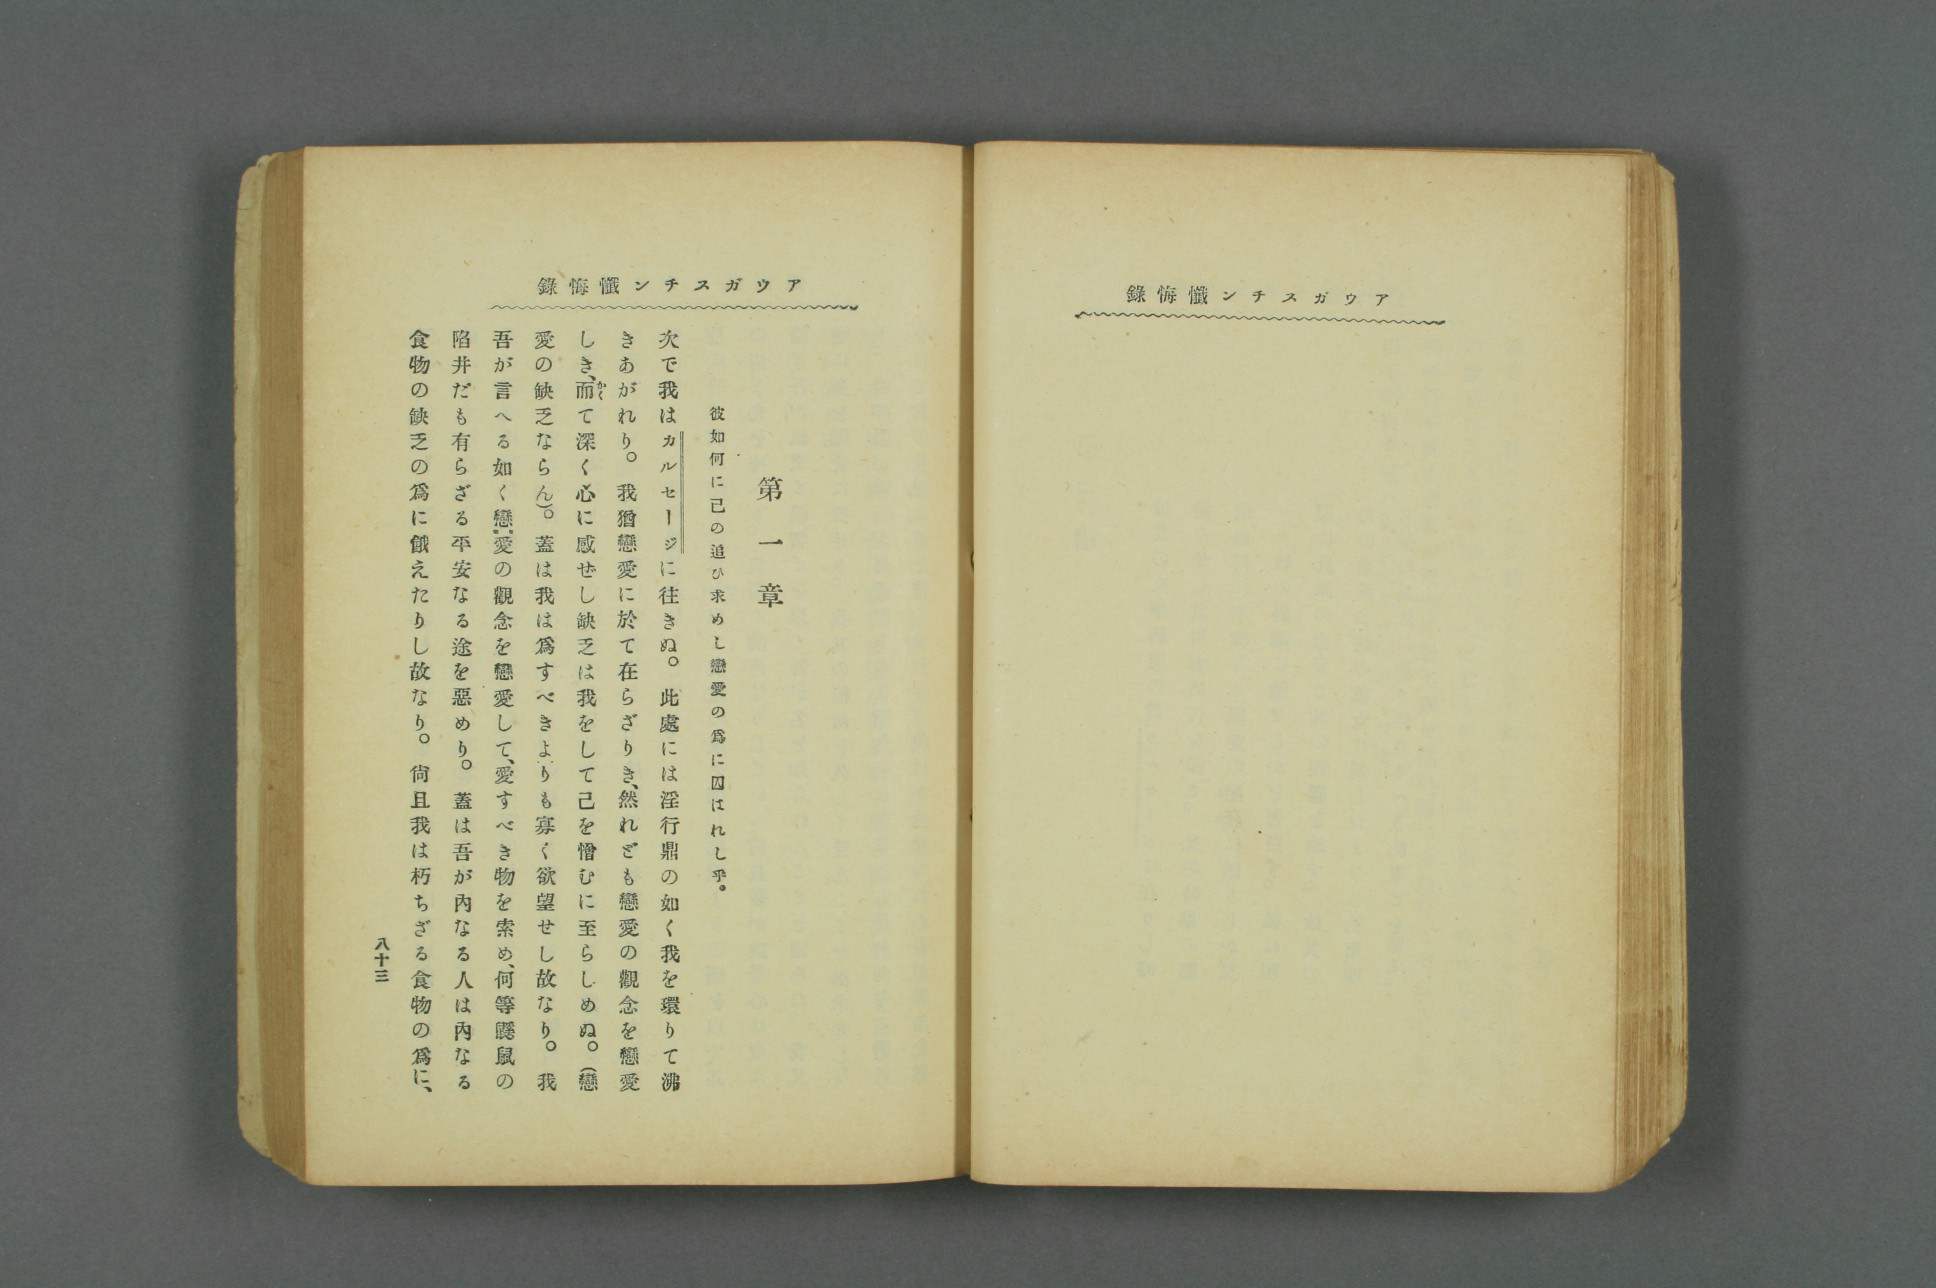 アウガスチン懺悔錄
アウガスチン懺悔錄
第一章
彼如何に己の追ひ求めし戀愛の爲に囚はれし乎。
次で我はカルセージに往きぬ。此處には淫行鼎の如く我を環りて沸
きあがれり。我猶戀愛に於て在らざりき、然れども戀愛の觀念を戀愛
しき、而て深く心に感ぜし缺乏は我をして己を憎むに至らしめぬ。(戀
愛の缺乏ならん)。蓋は我は爲すべきよりも寡く欲望せし故なり。我
吾が言へる如く戀愛の觀念を戀愛して、愛すべき物を索め、何等鼴鼠の
陷井だも有らざる平安なる途を惡めり。蓋は吾が內なる人は內なる
食物の缺乏の爲に餓えたりし故なり。尙且我は朽ちざる食物の爲に、
八十三